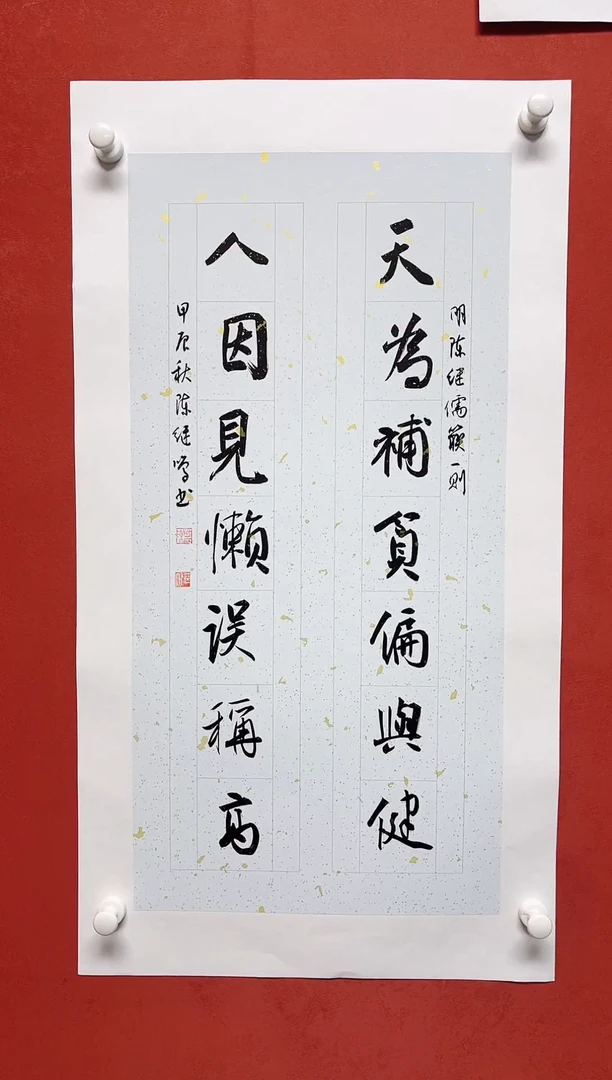 明陈继儒箴一则
天為補貧偏與健
人因見懶误稱高
甲辰秋陈继书